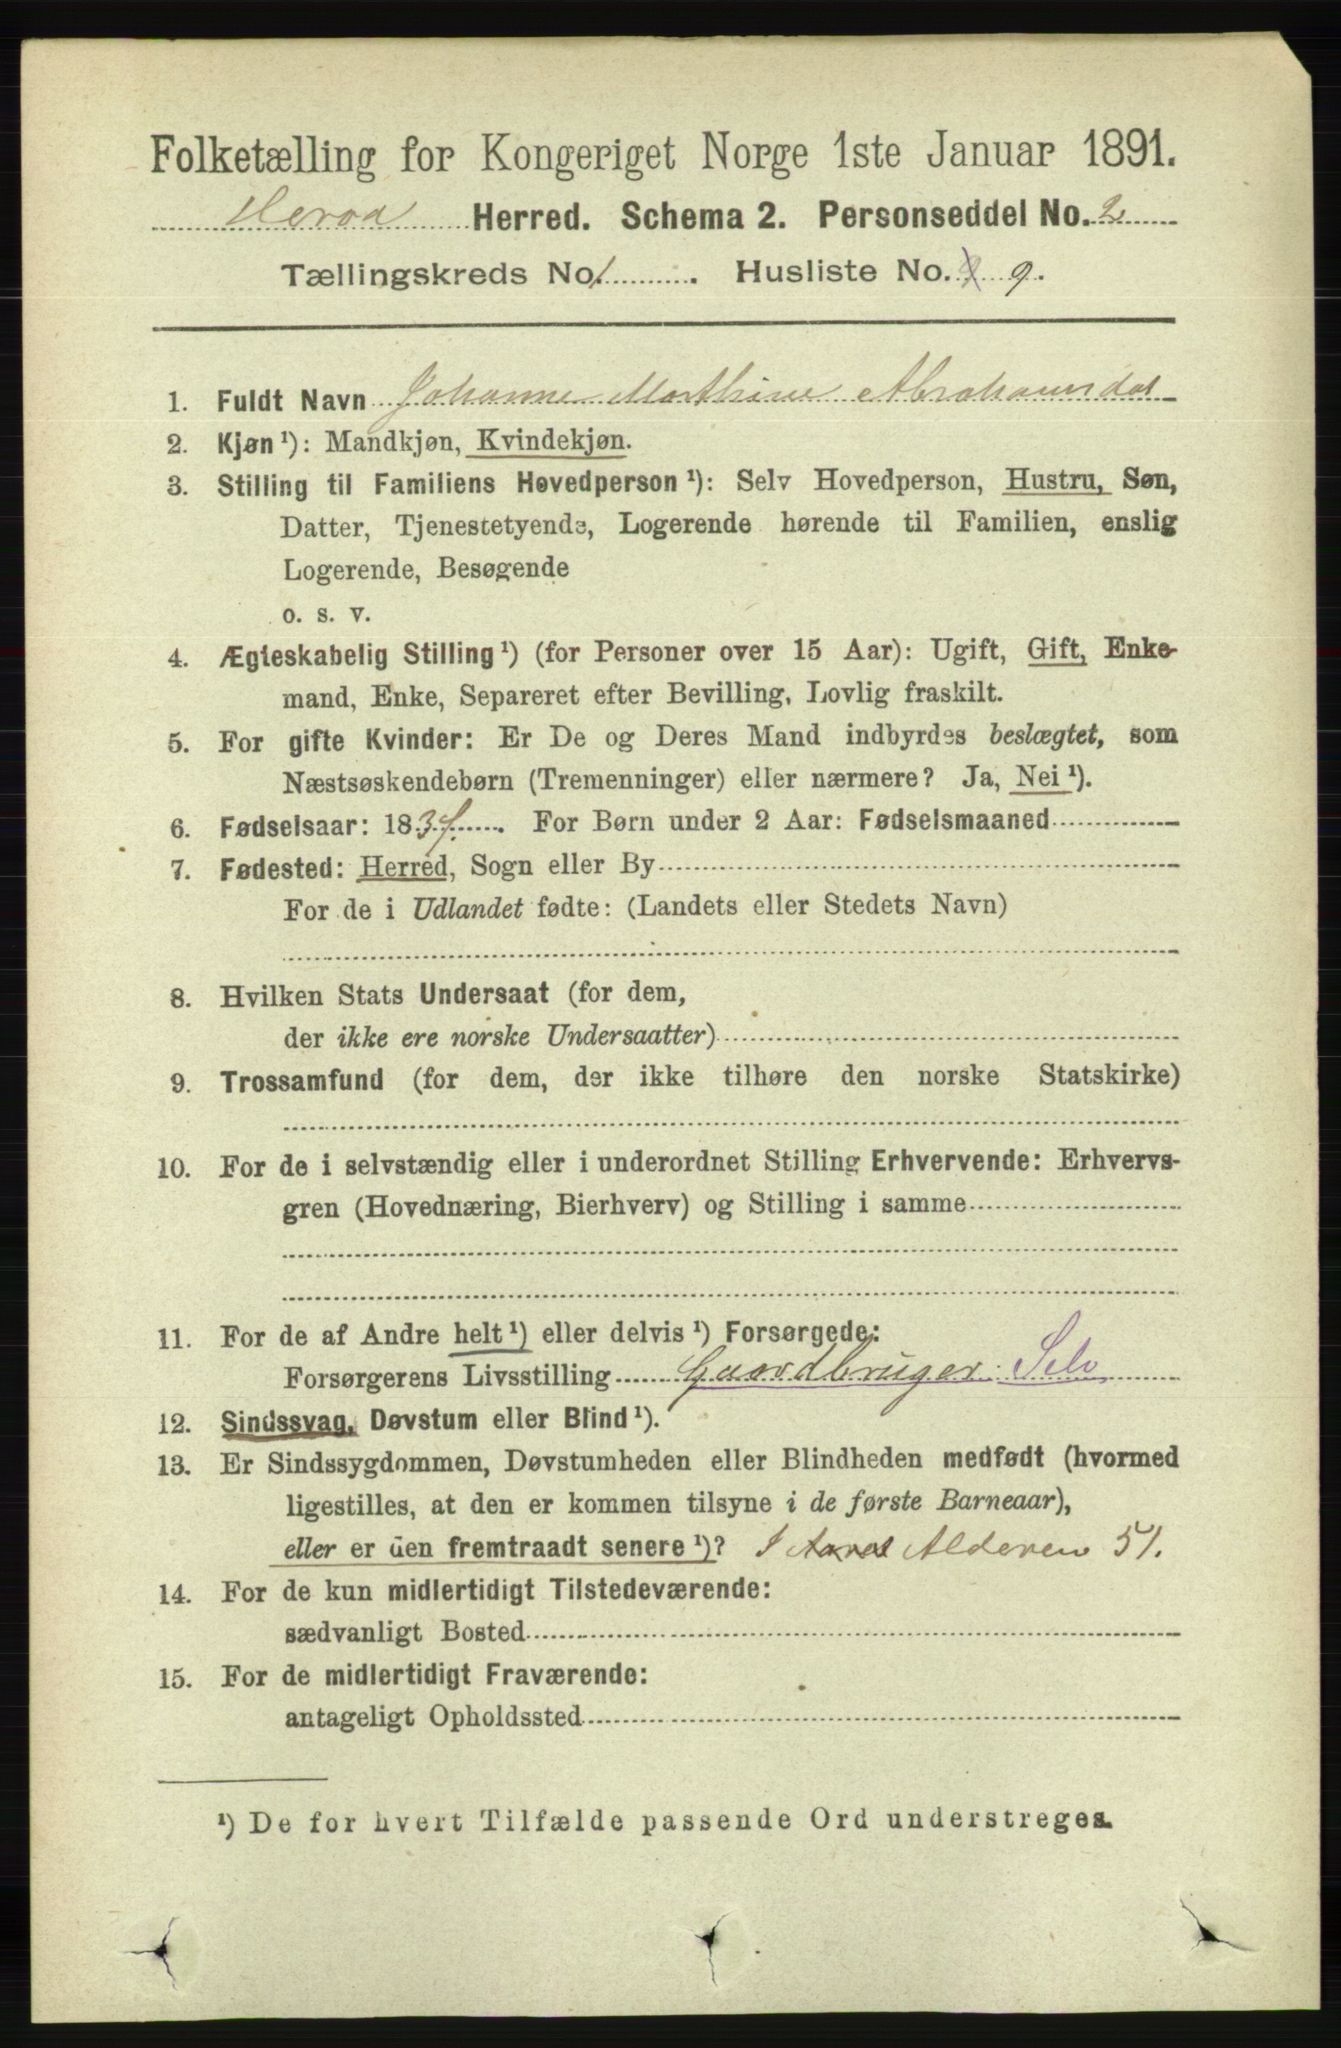 Folketælling for Kongeriget Norge 1ste Januar 1891.
Herad Herred. Schema 2. Personseddel No. 2
Tællingskreds No. 1. Husliste No. 9.
1. Fuldt Navn Johanne Marthine Abrahamsdat
2. Kjøn ¹): Mandkjøn, Kvindekjøn.
3. Stilling til Familiens Hovedperson ¹): Selv Hovedperson, Hustru, Søn,
Datter, Tjenestetyende, Logerende hørende til Familien, enslig
Logerende, Besøgende
o. s. v.
4. Ægteskabelig Stilling ¹) (for Personer over 15 Aar): Ugift, Gift, Enke-
mand, Enke, Separeret efter Bevilling, Lovlig fraskilt.
5. For gifte Kvinder: Er De og Deres Mand indbyrdes beslægtet, som
Næstsøskendebørn (Tremenninger) eller nærmere? Ja, Nei ¹).
6. Fødselsaar: 1834. For Børn under 2 Aar: Fødselsmaaned
7. Fødested: Herred, Sogn eller By
For de i Udlandet fødte: (Landets eller Stedets Navn)
8. Hvilken Stats Undersaat (for dem,
der ikke ere norske Undersaatter)
9. Trossamfund (for dem, der ikke tilhøre den norske Statskirke)
10. For de i selvstændig eller i underordnet Stilling Erhvervende: Erhvervs-
gren (Hovednæring, Bierhverv) og Stilling i samme
11. For de af Andre helt ¹) eller delvis ¹) Forsørgede:
Forsørgerens Livsstilling Gaardbruger. Selv
12. Sindssvag, Døvstum eller Blind ¹).
13. Er Sindssygdommen, Døvstumheden eller Blindheden medfødt (hvormed
ligestilles, at den er kommen tilsyne i de første Barneaar),
eller er den fremtraadt senere ¹)? I Alderen 51.
14. For de kun midlertidigt Tilstedeværende:
sædvanligt Bosted
15. For de midlertidigt Fraværende:
antageligt Opholdssted
¹) De for hvert Tilfælde passende Ord understreges.